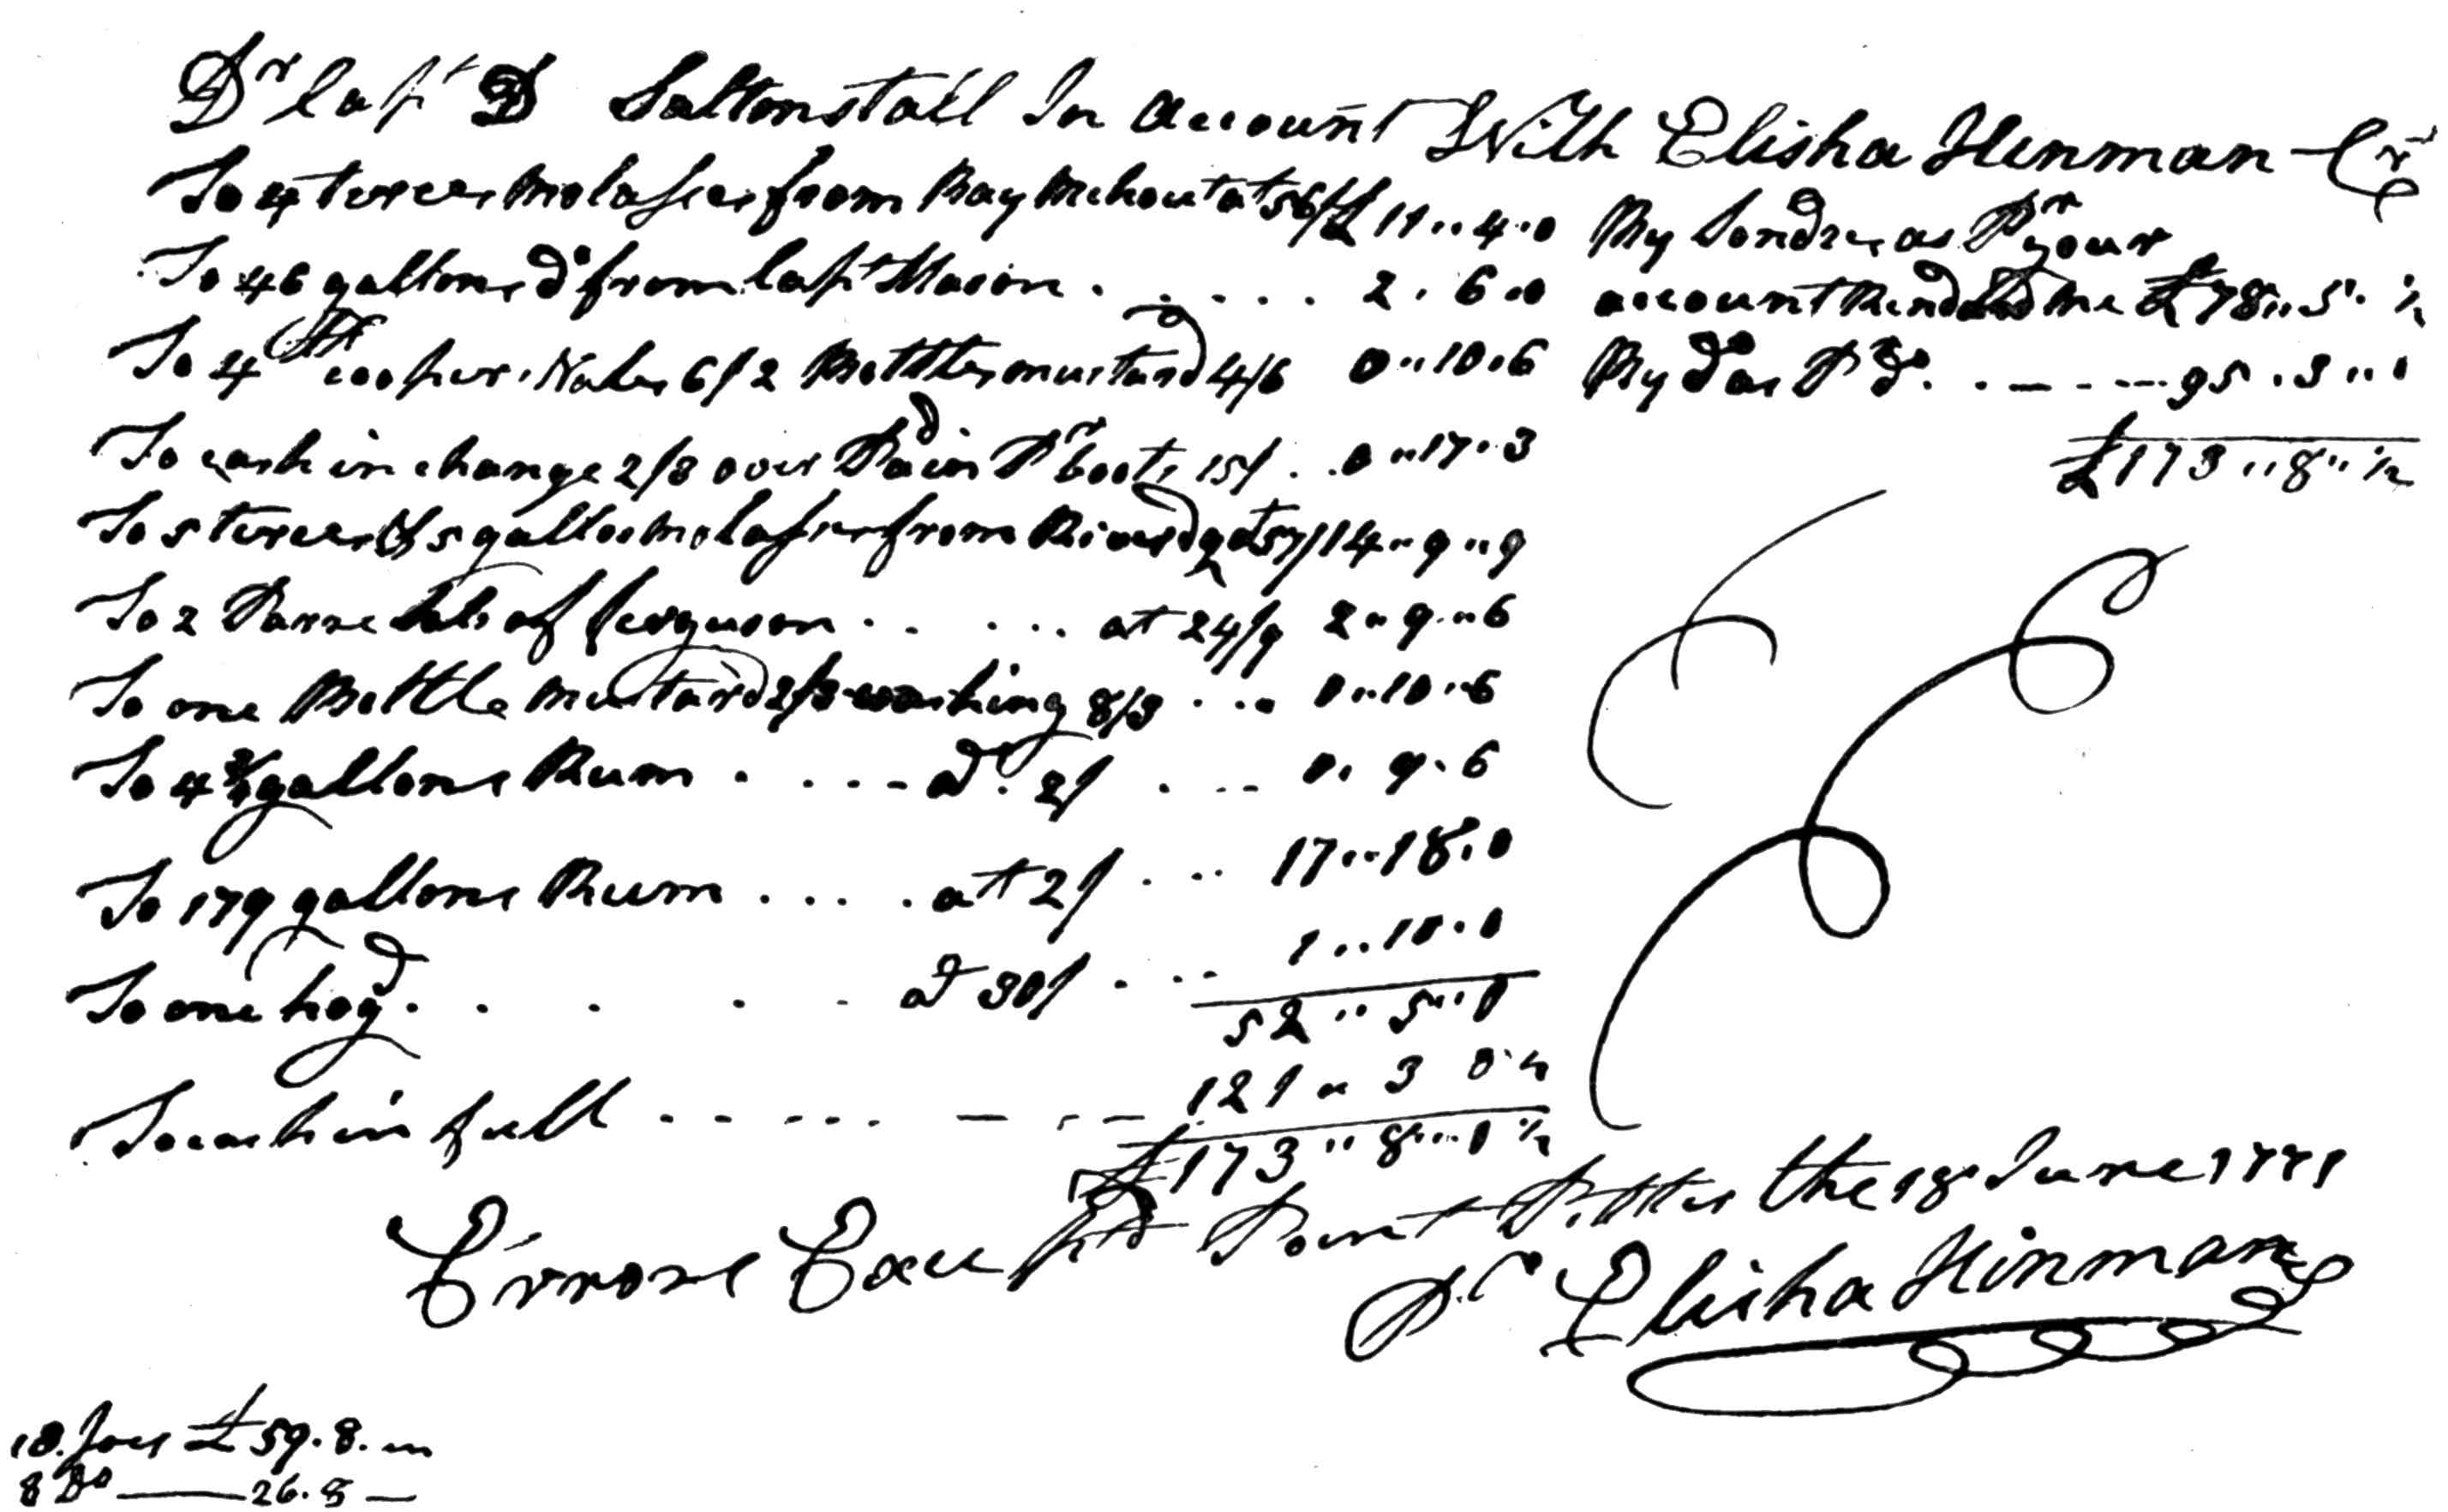 Dr Capt D Saltonstall In Account With Elisha Hinman Cr
To 4 terces molasses from Bay Mehout at 56/ £11..4.0 By Sondres as Pr your
To 46 gallons do from Capt Mason . . . . . 2.6.0 account Rendd me £78..5.½
To 4 lb cooper Nales 6/2 Bottles mustard 4/6 0..10.6 By do as Pr do . . - - --- 95.3..0
To cash in change 2/3 over Paid in Pr boots 15/ . . 0..17.3 £173..8..½
To 5 terces & 5 gallos molasses from River at 57/ 14..9..9
To 2 Barre of ferguson . . . . . at 24/9 2..9..6
To one Bottle Mustard 2/3 washing 8/3 . . . 0..10..6
To 4¾ gallons Rum . . . . - at . 2/ . . -- 0.9.6
To 179 gallons Rum . . . . at 2/ . . . 17..18.0
To one hogd . . . . . at 30/ . . . 1..10.0
52..5..0
To cash in full - - - - - - - - 121..3 0½
£173..8..0½
Errors Excepted Point Pitter the 18 June 1771
Pr Elisha Hinman
18 Joes £59.8.-
8 Do —— 26.8 —